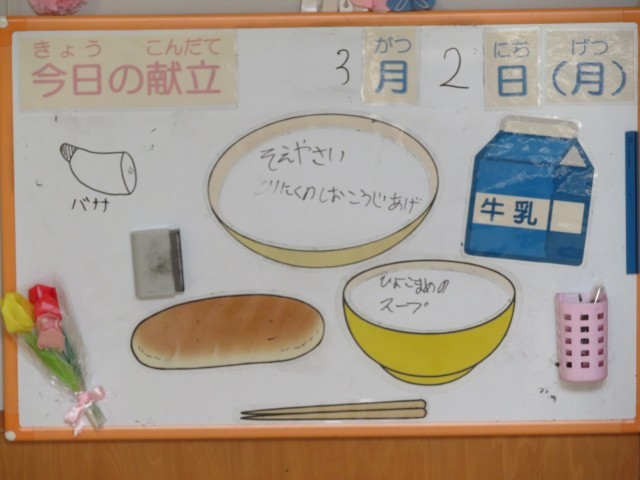 きょう こんだて
今日の献立
3 がつ 2 にち げつ
月 日 (月)
そえやさい
とりにくのしおこうじあげ
牛乳
バナナ
ひよこまめの
スープ